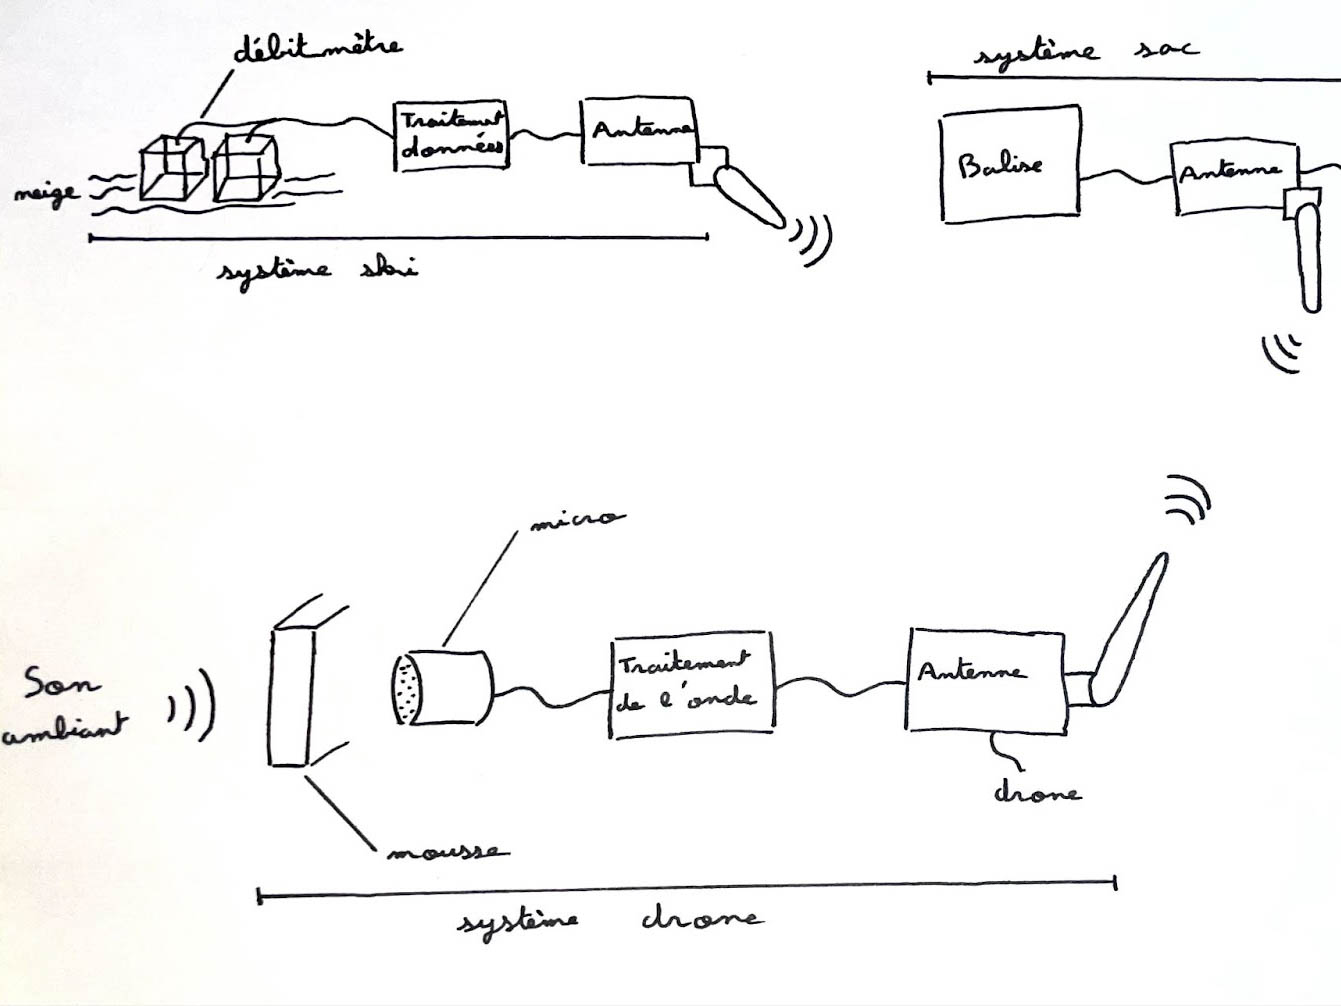 débitmètre
Traitement
données
Antenne
neige
système ski
système sac
Balise
Antenne
micro
Son
ambiant
Traitement
de l'onde
Antenne
drone
mousse
système drone